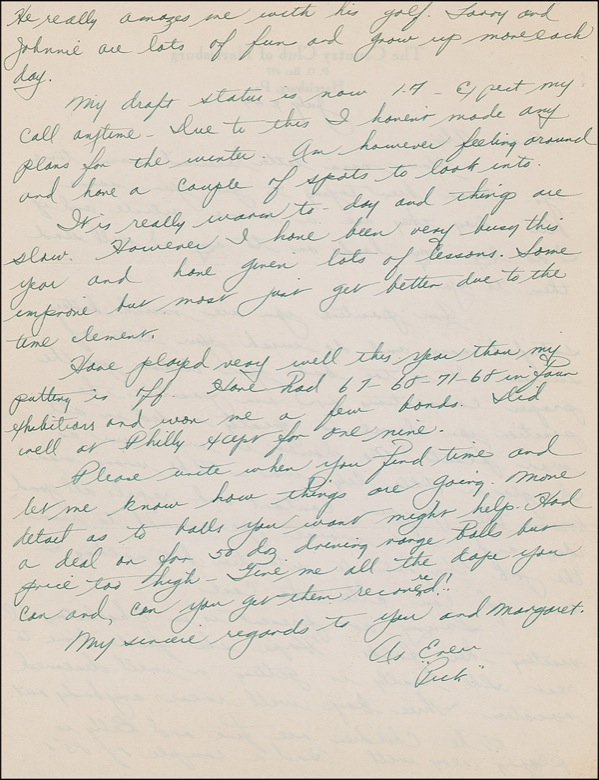 He really amazes me with his golf. Larry and
Johnnie are lots of fun and grow up more each
day.
My draft status is now 1.A - Expect my
call anytime - Due to this I haven't made any
plans for the winter. Am however feeling around
and have a couple of spots to look into.
It is really warm to-day and things are
slow. However I have been very busy this
year and have given lots of lessons. Some
improve but most just get better due to the
time element.
Have played very well this year than my
putting is off. Have had 67-68-71-68 in four
exhibitions and won me a few bonds. Did
well at Philly except for one nine.
Please write when you find time and
let me know how things are going. More
detail as to balls you want might help. Had
a deal on for 50 doz driving range balls but
price too high - Give me all the dope you
can and, can you get them re covered!!
My sincere regards to you and Margaret.
As Ever
"Pick"